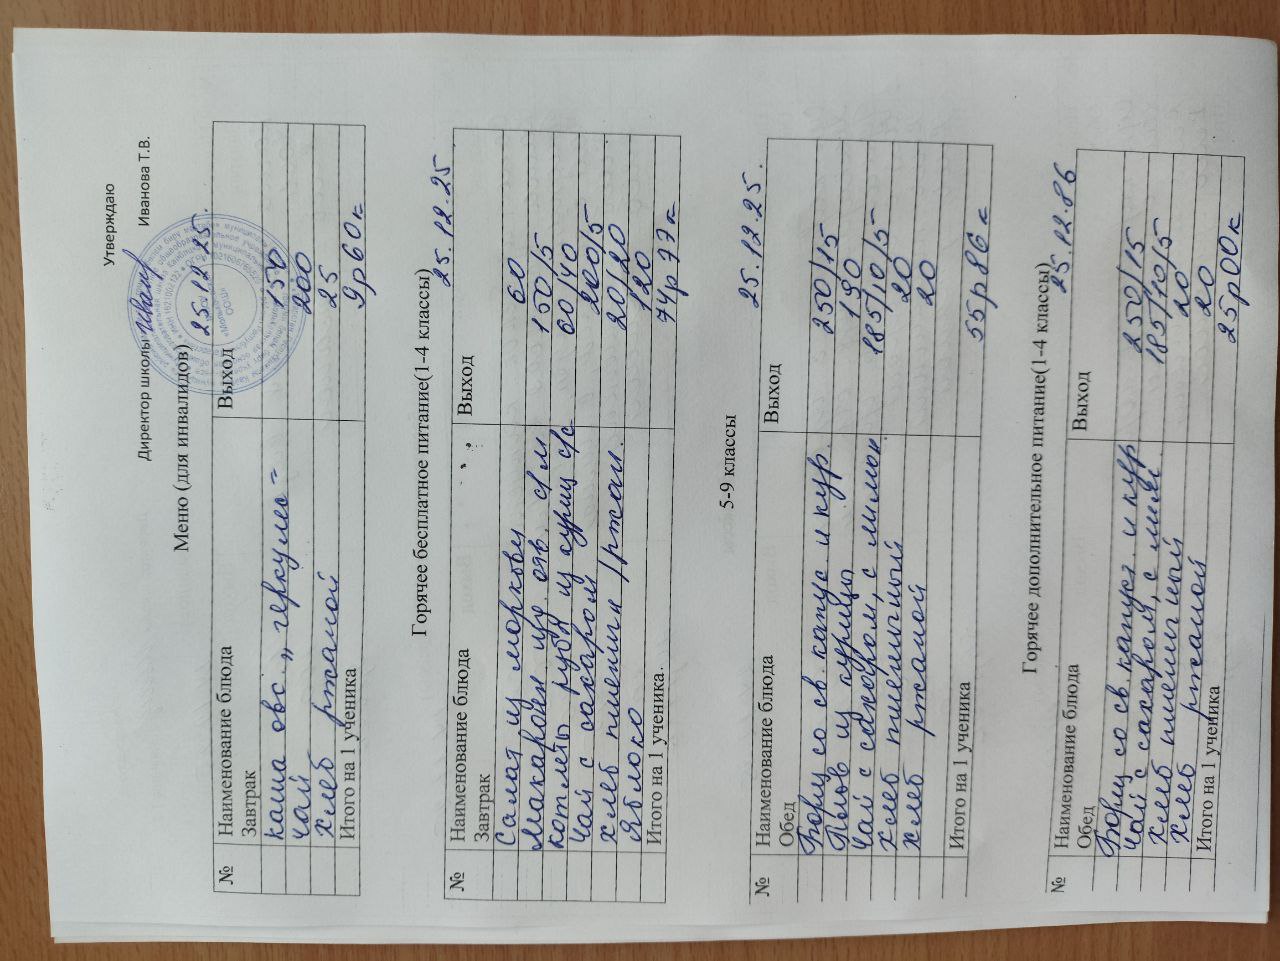 Утверждаю
Директор школы Иванова Т.В.
Меню (для инвалидов) 25.12.25.
№ Наименование блюда Выход
Завтрак
каша овс. „геркулес" 150
чай 200
хлеб ржаной 25
Итого на 1 ученика 9р60к
Горячее бесплатное питание(1-4 классы)
25.12.25
№ Наименование блюда Выход
Завтрак
Салат из моркови 60
Макарон изд. отв. с/м 150/5
котлеты рубл из куриц с/с 60/40
Чай с сахаром 200/5
хлеб пшеничн/ржан. 20/20
яблоко 120
Итого на 1 ученика. 74р77к
5-9 классы
25.12.25.
№ Наименование блюда Выход
Обед
Борщ со св. капус и кур. 250/15
Плов из курицы 190
Чай с сахаром, с лимон. 185/10/5
хлеб пшеничный 20
хлеб ржаной 20
Итого на 1 ученика 55р86к
Горячее дополнительное питание(1-4 классы)
№ Наименование блюда Выход
Обед
Борщ со св. капуст. и кур 250/15
Чай с сахаром, с 185/10/5
хлеб пшеничный 20
хлеб ржаной 20
Итого на 1 ученика 25р00к